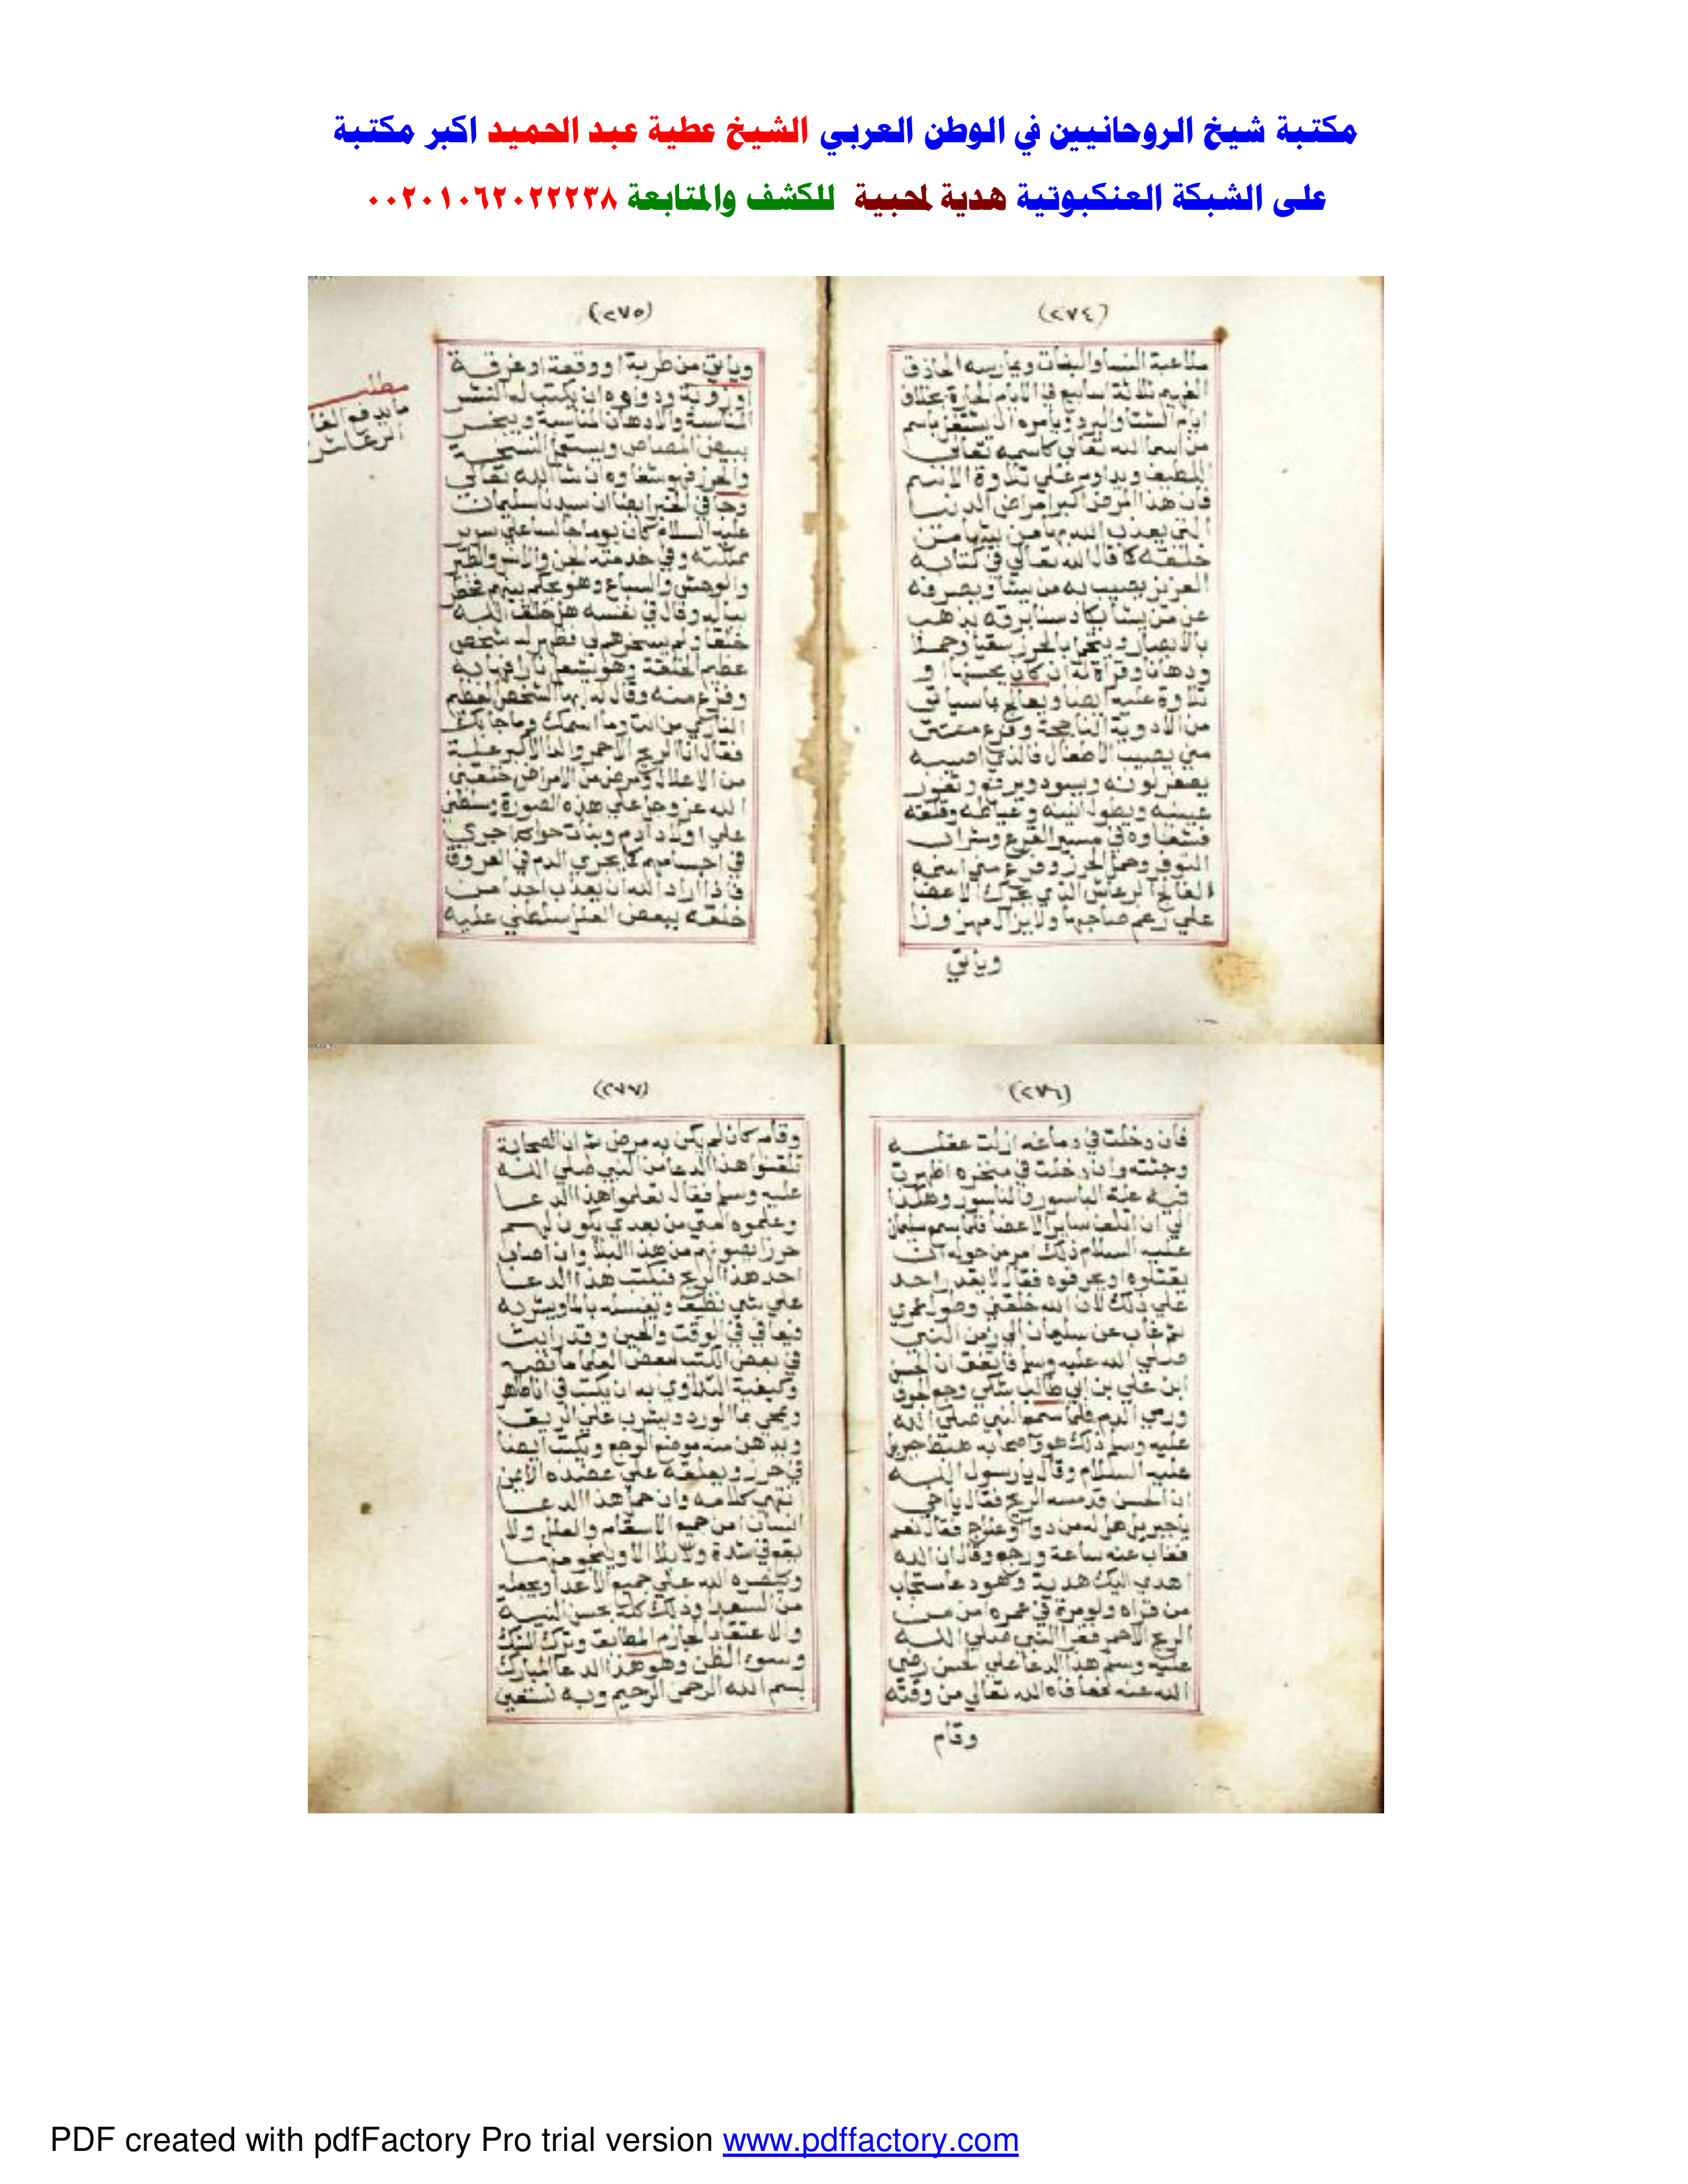 مكتبة شيخ الروحانيين في الوطن العربي الشيخ عطية عبد الحميد اكبر مكتبة
على الشبكة العنكبوتية هدية لمحبية للكشف والمتابعة ٠٠٢٠١٠٦٢٠٢٢٢٣٨
(٢٧٤)
ملاعبة النسا والبنات ويمارسه الحاذق
ثلاثة اسابيع في الايام الحارة بخلاف
ايام الشتا والبرد ويامره ان يشتغل باسم
من اسما الله تعالى كاسمه تعالى
اللطيف ويداوم على تلاوة الاسم
فان هذا المرض اكبر امراض الدنيا
التي يعذب الله بها من يشا من
خلقه كما قال الله تعالى في كتابه
العزيز يصيب به من يشا ويصرفه
عن من يشا يكاد سنا برقه يذهب
بالابصار
ودهانا وقراة له ان كان يحسنها او
تلاوة عليه ايضا ويعالج بما سياتي
من الادوية الناجحة وفرع
مني يصيب الاطفال فالذي اصيب به
يصفر لونه ويسود ويرق وتغور
عينيه ويطول انينه وعياطه وقلقه
فشفاوه في
وحمل الحرز وفرع مني اسمه
الفالج الرعاش الذي يحرك الاعضا
على رغم صاحبها ولا يزال
وياتي
(٢٧٥)
وياتي من طربة او وقعة او غرقة
ودواوه ان يكتب له النشر
المناسبة والادهان المناسبة ويبخر
والحرز فهو شفاوه ان شا الله تعالى
وجا في الخبر ايضا ان سيدنا سليمان
عليه السلام كان يوما جالسا على سرير
مملكته وفي خدمته الجن والانس والطير
والوحش والسباع وهو يحكم بينهم فخطر
بباله وقال في نفسه هل خلق الله
خلقا ولم يسخرهم لي فظهر له شخص
عظيم الخلقة وهو يشعل نارا
وفزع منه وقال له ايها الشخص العظيم
الناري من انت وما اسمك وما جا بك
فقال انا الريح الاحمر وانا الاكبر علة
من الاعلال ومرض من الامراض خلقني
الله عز وجل على هذه الصورة وسلطني
على اولاد ادم وبنات حوا اجري
في اجسامهم كما يجري الدم في العروق
فاذا اراد الله ان يعذب احدا من
خلقه ببعض العلل سلطني عليه
مطلب
ما يدفع الفالج
الرعاش
(٢٧٦)
فان دخلت في دماغه ازلت عقله
وجننته وان دخلت في منخره اظهرت
فيه علة الباسور والناسور وهكذا
الى ان اتلف ساير الاعضا فلما سمع سليمان
عليه السلام ذلك امر من حوله ان
يقتلوه او يحرقوه فقال لا يقدر احد
على ذلك لان الله خلقني وطول عمري
ثم غاب عن سليمان الى زمن النبي
صلى الله عليه وسلم فاتفق ان الحسن
ابن علي بن ابي طالب شكى وجع الجوف
ورمي الدم فلما سمع النبي صلى الله
عليه وسلم ذلك هو واصحابه هبط جبريل
عليه السلام وقال يا رسول الله
ان الحسن قد مسه الريح فقال يا اخي
يا جبريل هل له من دوا وعلاج فقال نعم
فغاب عنه ساعة ورجع وقال ان الله
اهدى اليك هدية وهو دعا مستجاب
من قراه ولو مرة في عمره امن من
الريح الاحمر فقرا النبي صلى الله
عليه وسلم هذا الدعا على الحسن رضي
الله عنه فعافاه الله تعالى من وقته
وقام
(٢٧٧)
وقام كان لم يكن به مرض ثم ان الصحابة
تلقنوا هذا الدعا من النبي صلى الله
عليه وسلم فقال تعلموا هذا الدعا
وعلموه امتي من بعدي يكون لهم
حرزا يصونهم من هذا البلا وان اصاب
احد هذا الريح فيكتب هذا الدعا
على شي نظيف ويغسله بالما ويشربه
فيعافى في الوقت والحين وقد رايت
في بعض الكتب لبعض العلما ما نصه
وكيفية التداوي به ان يكتب في انا طاهر
ويمحى بما الورد ويشرب على الريق
ويدهن منه موضع الوجع ويكتب ايضا
في حرز ويعلقه على عضده الايمن
انتهى كلامه وان حمل هذا الدعا
انسان امن جميع الاسقام والعلل ولا
يقع في شدة ولا بلا الا وينجو منها
وينصره الله على جميع الاعدا ويجعله
من السعدا وذلك كله بحسن النية
والاعتقاد الجازم المطابق وترك الشك
وسوء الظن وهو هذا الدعا المبارك
بسم الله الرحمن الرحيم وبه نستعين
PDF created with pdfFactory Pro trial version www.pdffactory.com